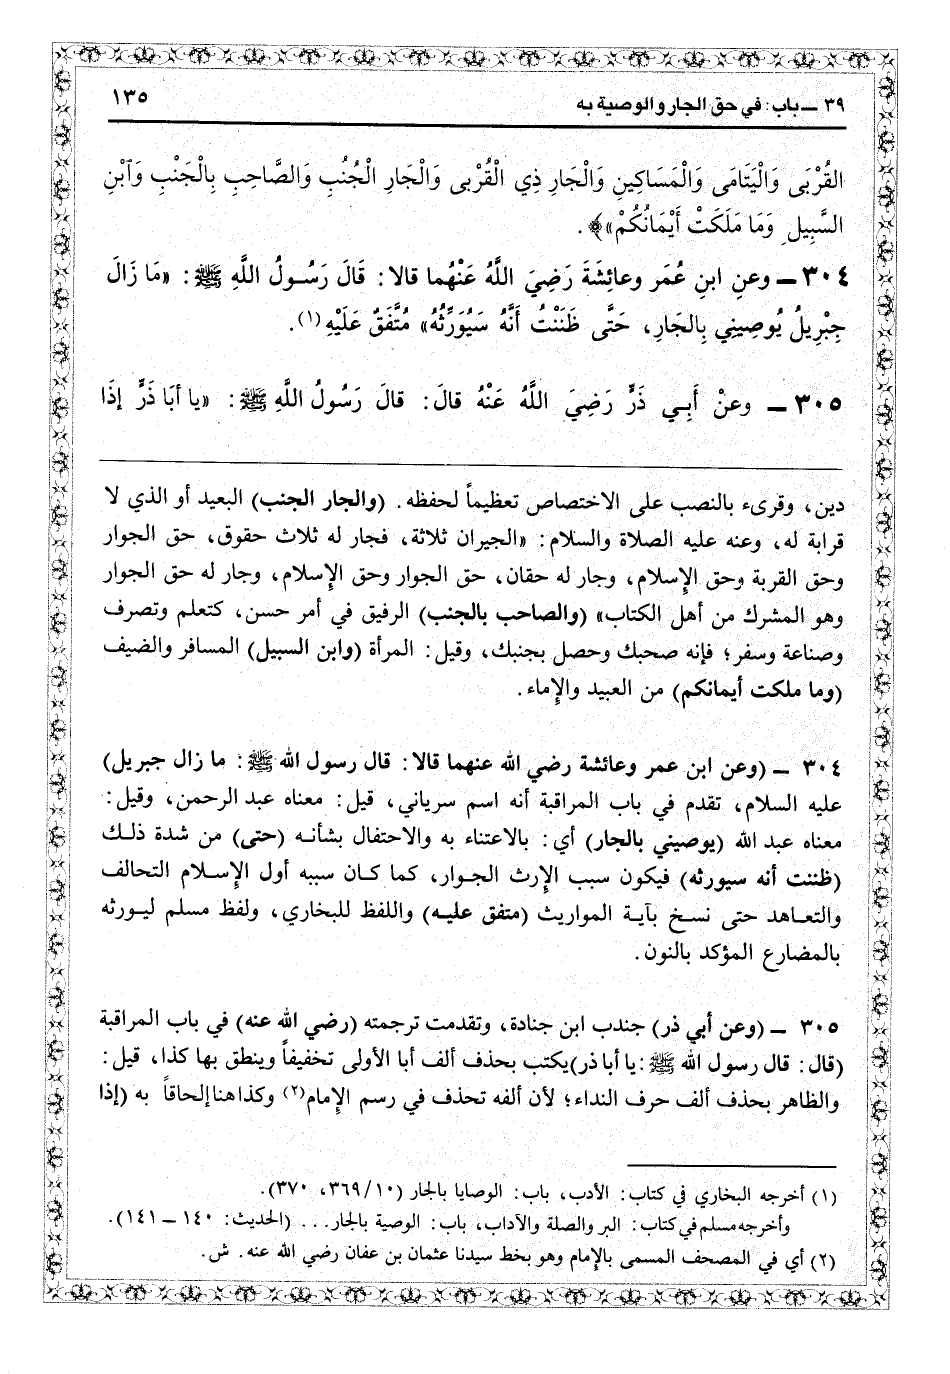 ٣٩ ــ باب: في حق الجار والوصية به ١٣٥
القُرْبَى وَالْيَتَامَى وَالْمَسَاكِينِ وَالْجَارِ ذِي الْقُرْبى وَالْجَارِ الْجُنُبِ وَالصَّاحِبِ بِالْجَنْبِ وَآبْنِ
السَّبِيلِ وَمَا مَلَكَتْ أَيْمَانُكُمْ»﴾.
٣٠٤ ــ وعنِ ابنِ عُمَر وعائِشَةَ رَضِيَ اللَّهُ عَنْهُما قالا: قَالَ رَسُولُ اللَّهِ ﷺ: «مَا زَالَ
جِبْرِيلُ يُوصِيني بِالجَارِ، حَتَّى ظَنَنْتُ أَنَّهُ سَيُوَرِّثُهُ» مُتَّفَقٌ عَلَيْهِ(١).
٣٠٥ ــ وعنْ أَبِي ذَرٍّ رَضِيَ اللَّهُ عَنْهُ قالَ: قالَ رَسُولُ اللَّهِ ﷺ: «يا أبَا ذَرٍّ إذَا
دين، وقرىء بالنصب على الاختصاص تعظيماً لحفظه. (والجار الجنب) البعيد أو الذي لا
قرابة له، وعنه عليه الصلاة والسلام: «الجيران ثلاثة، فجار له ثلاث حقوق، حق الجوار
وحق القربة وحق الإسلام، وجار له حقان، حق الجوار وحق الإسلام، وجار له حق الجوار
وهو المشرك من أهل الكتاب» (والصاحب بالجنب) الرفيق في أمر حسن، كتعلم وتصرف
وصناعة وسفر؛ فإنه صحبك وحصل بجنبك، وقيل: المرأة (وابن السبيل) المسافر والضيف
(وما ملكت أيمانكم) من العبيد والإماء.
٣٠٤ ــ (وعن ابن عمر وعائشة رضي الله عنهما قالا: قال رسول الله ﷺ: ما زال جبريل)
عليه السلام، تقدم في باب المراقبة أنه اسم سرياني، قيل: معناه عبد الرحمن، وقيل:
معناه عبد الله (يوصيني بالجار) أي: بالاعتناء به والاحتفال بشأنه (حتى) من شدة ذلك
(ظننت أنه سيورثه) فيكون سبب الإرث الجوار، كما كان سببه أول الإسلام التحالف
والتعاهد حتى نسخ بآية المواريث (متفق عليه) واللفظ للبخاري، ولفظ مسلم ليورثه
بالمضارع المؤكد بالنون.
٣٠٥ ــ (وعن أبي ذر) جندب ابن جنادة، وتقدمت ترجمته (رضي الله عنه) في باب المراقبة
(قال: قال رسول الله ﷺ: يا أبا ذر) يكتب بحذف ألف أبا الأولى تخفيفاً وينطق بها كذا، قيل:
والظاهر بحذف ألف حرف النداء؛ لأن ألفه تحذف في رسم الإمام(٢) وكذا هنا إلحاقاً به (إذا
(١) أخرجه البخاري في كتاب: الأدب، باب: الوصايا بالجار (٣٦٩/١٠، ٣٧٠).
وأخرجه مسلم في كتاب: البر والصلة والآداب، باب: الوصية بالجار... (الحديث: ١٤٠ ــ ١٤١).
(٢) أي في المصحف المسمى بالإمام وهو بخط سيدنا عثمان بن عفان رضي الله عنه. ش.